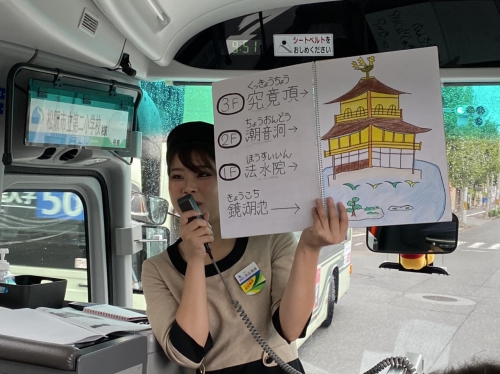 9:51
シートベルトを
おしめください
くっきょうちょう
3F 究竟頂→
ちょうおんどう
2F 潮音洞→
ほうすいいん
1F 法水院→
きょうこち
鏡湖池→
50